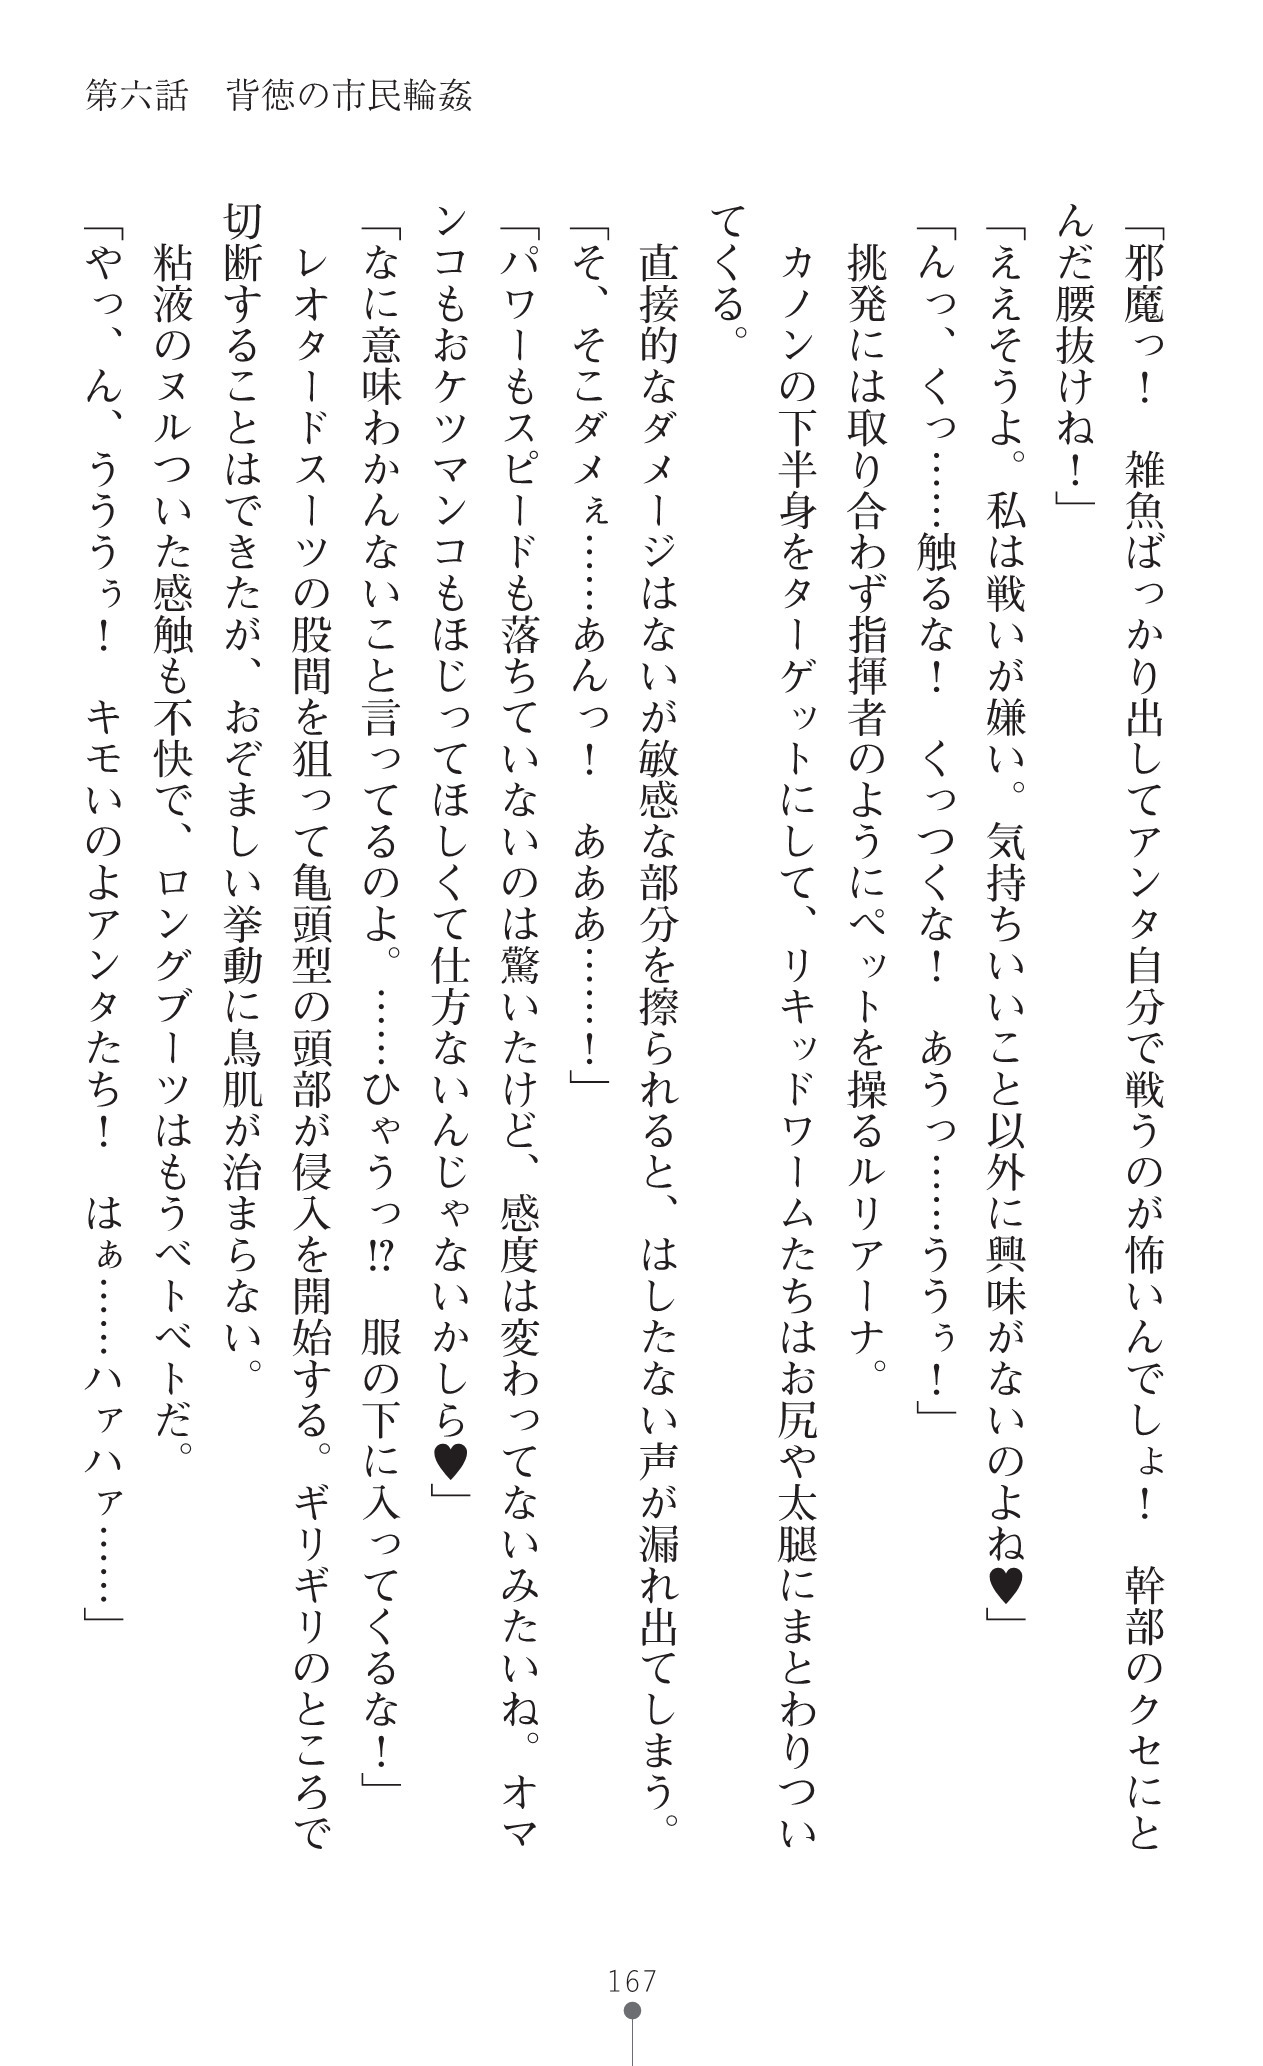 第六話　背徳の市民輪姦
「邪魔っ！　雑魚ばっかり出してアンタ自分で戦うのが怖いんでしょ！　幹部のクセにと
んだ腰抜けね！」
「ええそうよ。私は戦いが嫌い。気持ちいいこと以外に興味がないのよね♥」
「んっ、くっ……触るな！　くっつくな！　あうっ……ううぅ！」
　挑発には取り合わず指揮者のようにペットを操るルリアーナ。
　カノンの下半身をターゲットにして、リキッドワームたちはお尻や太腿にまとわりつい
てくる。
　直接的なダメージはないが敏感な部分を擦られると、はしたない声が漏れ出てしまう。
「そ、そこダメぇ……あんっ！　あああ……！」
「パワーもスピードも落ちていないのは驚いたけど、感度は変わってないみたいね。オマ
ンコもおケツマンコもほじってほしくて仕方ないんじゃないかしら♥」
「なに意味わかんないこと言ってるのよ。……ひゃうっ⁉　服の下に入ってくるな！」
　レオタードスーツの股間を狙って亀頭型の頭部が侵入を開始する。ギリギリのところで
切断することはできたが、おぞましい挙動に鳥肌が治まらない。
　粘液のヌルついた感触も不快で、ロングブーツはもうベトベトだ。
「やっ、ん、うううぅ！　キモいのよアンタたち！　はぁ……ハァハァ……」
167